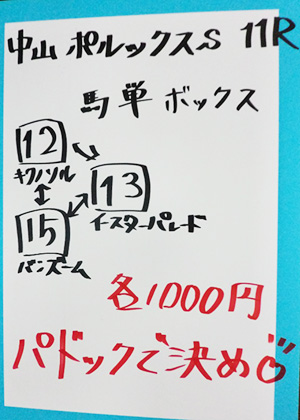 中山 ポルックスS 11R
馬単 ボックス
12
キクノソル
13
イースターパレード
15
バンズーム
各1000円
パドックで決め